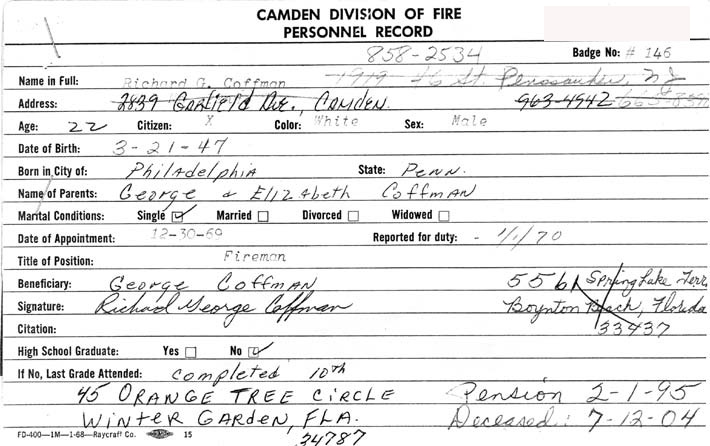 CAMDEN DIVISION OF FIRE
PERSONNEL RECORD
858-2534 Badge No: # 146
Name in Full: Richard G. Coffman 1919 46 St. Pennsauken, NJ
Address: 2839 Garfield Ave., Camden. 963-4942
Age: 22 Citizen: X Color: White Sex: Male
Date of Birth: 3-21-47
Born in City of: Philadelphia State: Penn.
Name of Parents: George & Elizabeth Coffman
Marital Conditions: Single ☑ Married ☐ Divorced ☐ Widowed ☐
Date of Appointment: 12-30-69 Reported for duty: - 1/1/70
Title of Position: Fireman
Beneficiary: George Coffman 5561 Spring Lake Terr.
Signature: Richard George Coffman Boynton Beach, Florida
Citation: 33437
High School Graduate: Yes ☐ No ☑
If No, Last Grade Attended: completed 10th
45 ORANGE TREE CIRCLE Pension 2-1-95
WINTER GARDEN, FLA. Deceased: 7-12-04
34787
FD-400—1M—1-68—Raycraft Co. 15